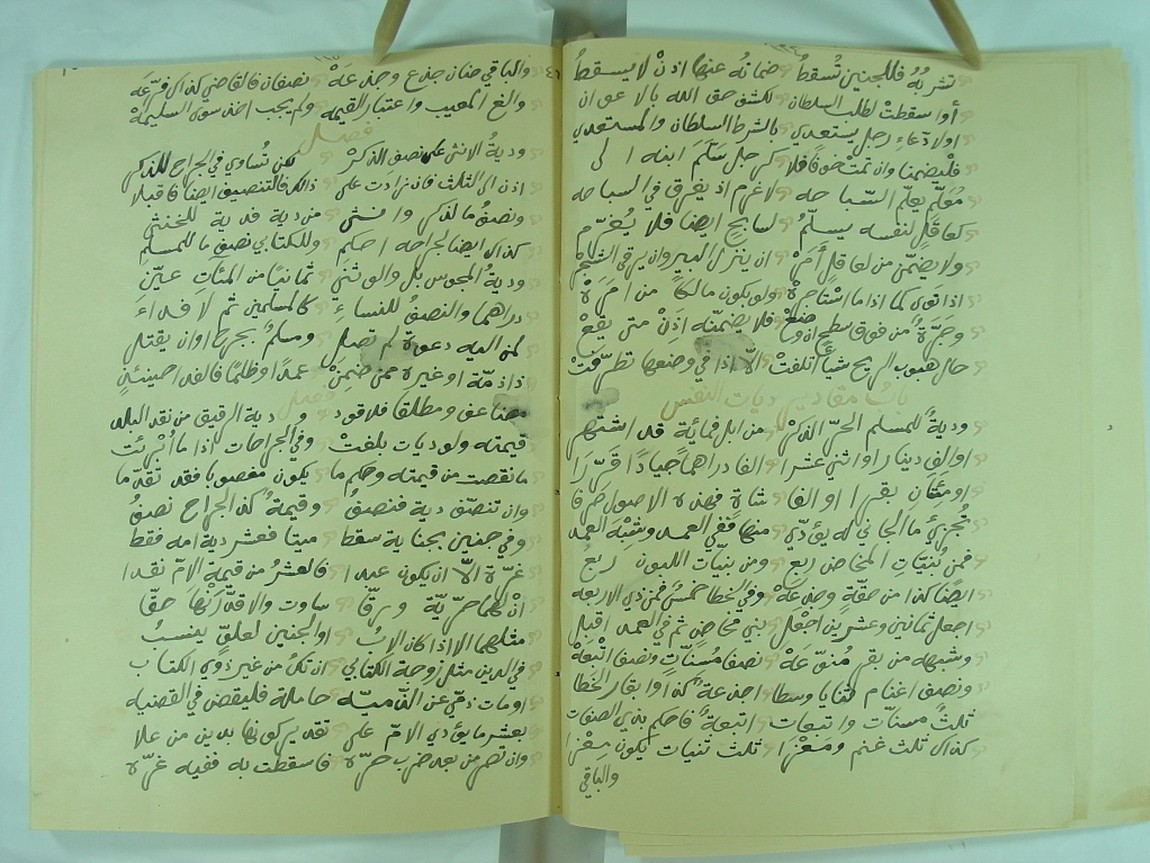 تشربه فللجنين تُسقطُ ضمانُه عنها اذنْ لا يسقطُ
أو اسقطتْ لطلب السلطان لكشف حق الله بالاعوان
او لادّعاءِ رجل يستعدي بالشرط السلطان والمستعدي
فليضمنا وان تمت خوفا فلا كرجل سَلَّمَ ابنه الى
مُعَلِّمٍ يعلّم السّباحه لا غرم اذ يغرق في السباحه
كعاقلٍ لنفسه يسلّمُ لسابحٍ ايضا فلا يُغرّم
ولا يضمّن من لعاقلٍ أَمَرْ ان ينزل البير وان يرقى الشجر
اذا توى كما اذا ما استاجرهْ ولو يكون مالكاً من امَرَهْ
وجَرَّةً من فوق سطحٍ ان وضعْ فلا يضمّنه اذَنْ متى يقعْ
حال هبوب الريح شيأً اتلفتْ الاّ اذا في وضعها تطرّفتْ
بابُ مقادير ديات النفس
وديةُ للمسلم الحرّ الذكرْ من ابل فمائية قد اشتهر
او الفِ دينار او اثني عشرا الفا دراهماً جيادًا قرّرَا
او مئتان بقرا او الفا شاةٍ فهذه الاصول صرفا
تُجزئ ما الجاني له يؤدّي منها ففي العمد وشبه العمد
فمن بُنيّاتِ المخاض ربع ومن بنيّات اللبون ربعُ
ايضًا كذا من حقّةٍ وجذعهْ وفي الخطا خمسٌ فمن ذي الاربعه
اجعل ثمانين وعشرين اجْعَل بني مخاضٍ ثم في العمد اقبل
وشبهه من بقر مُنوّعهْ نصفا مُسنّاتٍ ونصفا اتْبَعَهْ
ونصف اغنام ثنايا وسطا اجذعةً كذا وابقار الخطا
ثلثُ مسنّات واتبعات اتبعةً فاحكم بذي الصفات
كذاك ثلث غنم ومعْزَا ثلث ثنيات يكون معْزا
والباقي
والباقي ضان جذع وجذعهْ نصفان فالقاضي كذاك فرّعَه
والغ المعيب واعتبار القيمه ولم يجب اخذ سوى السليمهْ
فصل
وديةُ الانثى على نصف الذكرْ لكن تُساوي في الجراح للذكر
اذن الى الثلث فان زادت على ذالك فالتنصيف ايضا فاقبلا
ونصفُ ما لذكر وانثى من دية فدية للخنثى
كذاك ايضا لجراحه احكم وللكتابي نصف ما للمسلم
وديةُ المجوس بل والوثني ثمانيًا من المئات عيّن
دراهما والنصفُ للنساءِ كالمسلمين ثم لا فداءَ
لمن اليه دعوة لم تصل ومسلمٌ بجرح او ان يقتل
ذا ذمّة او غيره ممن ضمنْ عمدًا وظلمًا فالفدا حينئذٍ
فصل
هنا عفى ومطلقا فلا قود ودية الرقيق من نقد البلد
قيمته ولو ديات بلغتْ وفي الجراحات اذا ما أبرئت
ما نقصت من قيمته وحكم ما يكون مغصوبا فقد تقدّما
وان تنصّف دية فنصفُ وقيمةٌ كذا الجراح نصفُ
وفي جنين بجناية سقط ميتا فعشر دية امه فقط
غرّة الاّ ان يكون عبدا فالعشرُ من قيمة الامّ نقدا
انْ لهما حرّيّة ورقّا ساوت والا قدّرَنْها حقّا
مثلهما الا اذا كان الابُ او الجنين لعلوٍّ ينسبُ
في الدين مثل زوجة الكتابي ان تكُ من غير ذوي الكتاب
او مات ذمّي عن الذميّه حاملة فليقض في القضيه
بعشر ما يؤدي الامّ على تقدير كونها بدين من علا
وان تصر من بعد ضرب حرّه فاسقطت به ففيه غرّه